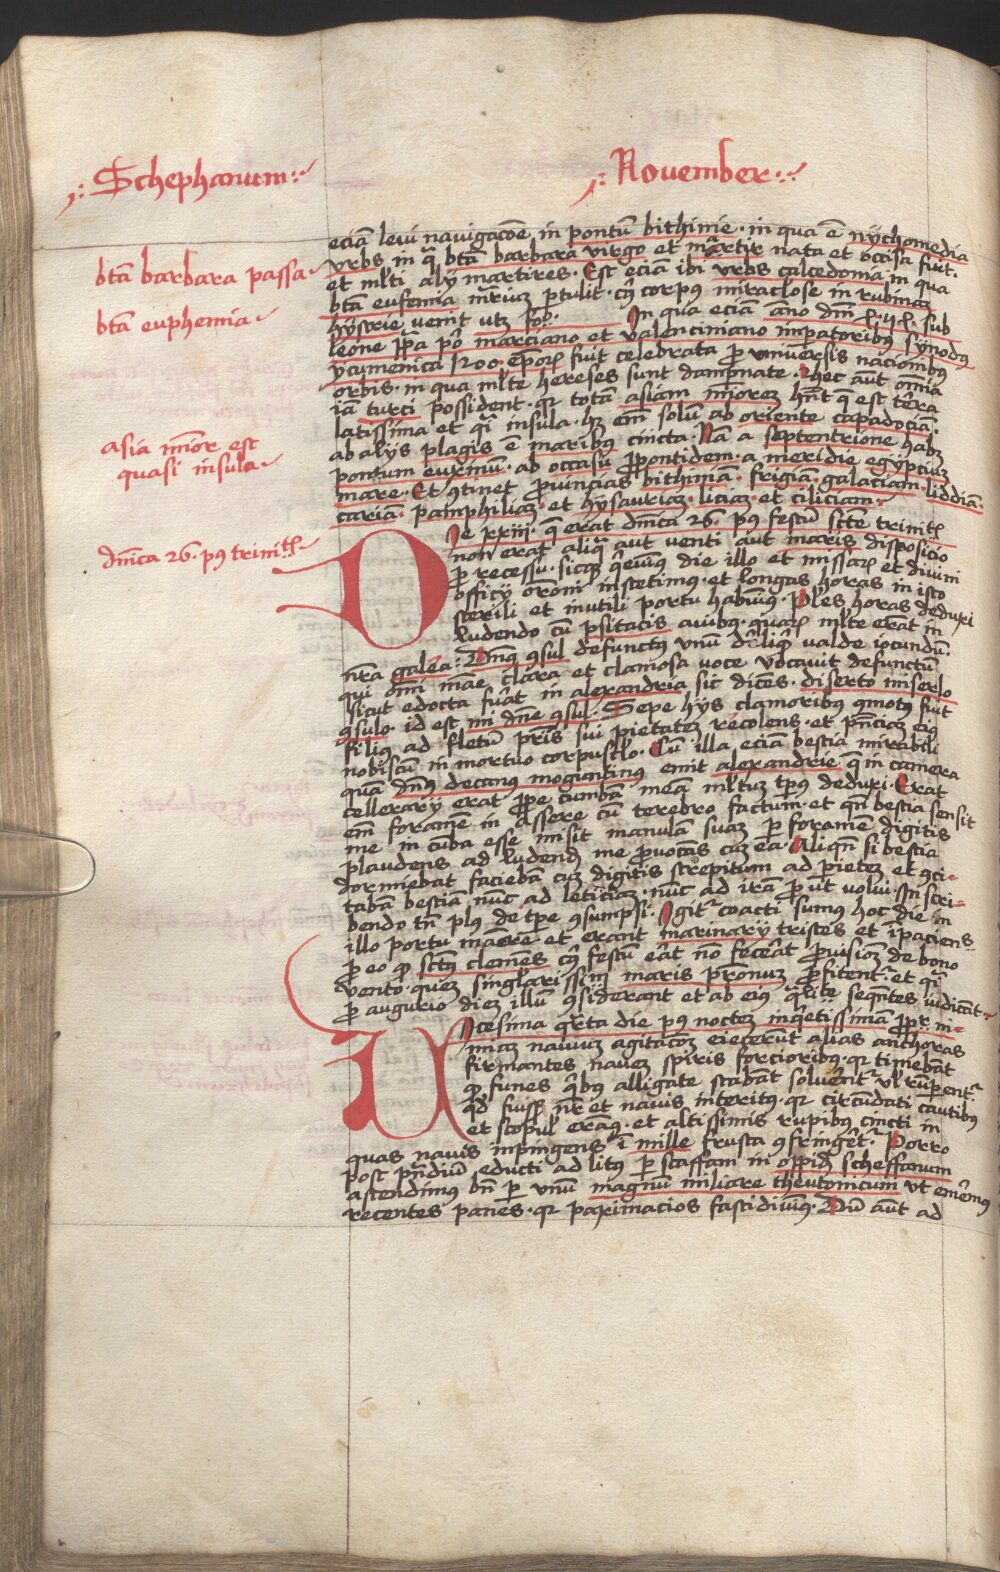 Schephanum
November
btā barbara passa
btā euphemia
asia mior est
quasi insula
dnica 26. p9 trinit
eciā leui nauigacōe in pontū bithinie · in qua ē nychomedia
vrbs in q̄ btā barbara virgo et martir nata et occisa fuit ·
et mlti alij martires · Est eciā ibi vrbs calcedonia in qua
btā eufemia mrium ptulit · cui9 corp9 miraclose in rubinaz
hystrie venit vtz fo. · In qua eciā āno dnī sub
leone pp̄a p̄o marciano et valenciniano imperatorib9 synod9
ycumenica 1200 · ep̄oꝝ fuit celebrata p vniūersis nacionib9
orbis · in qua mlte hereses sunt dampnate · hec aūt om̄ia
iā turci possident · qr totā asiam mīorez hn̄t q̄ est tēra
latissima et q̄i insula · hz em̄ solū ab oriente capadociā ·
ab alijs plagis ē marib9 cincta · Nā a septentrione habz
pontum euximū · ab occasu ppontidem · a meridie egypciuz
mare · Et 9tinet puincias bithiniā · frigiā · galaciam · liddiā ·
cariā · pamphiliaz · et hysauriaz · liciaz · et ciliciam ·
Die xxiii · q̄ erat dnīca 26 · p9 festū scte trinit
non erat aliq̄ aut venti aut maris disposicio
p recessu · sicqz q̄euim9 die illo et missaꝝ et diuini
officij orōni institim9 · et longas horas in isto
sterili et inutili portu habuim9 · Ples horas deduxi
ludendo cū psitacis auib9 · quaꝝ mlte erāt in
nr̄a galea · Dn̄9 9sul defunct9 vnū derliq̄t valde iocundū ·
qui dnī māe clara et clamosa voce vocauit defunctū
sicut edocta fuāt in alexandria sic dicēs · diserto miserlo
9sulo · id est mi dn̄e 9sul · Sepe hijs clamorib9 9mot9 fuit
fili9 ad fletū pris sui pietatem recolens · et pn̄ciaz ei9
nobiscū in mortuo corpusclo · Cū illa eciā bestia mirabili
quā dn̄9 decanus moguntin9 emit alexandrie q̄ in camera
cellerarij erat ppe cumbā meā mltuz tp9 deduxi · Erat
em̄ foramē in assere cū terebro factum · et qn̄ bestia sensit
me in cūba esse misit manulā suaz p foramē digitis
plaudens ad ludend me puocās cuz ea · Aliqn̄ si bestia
dormiebat faciebā cuz digitis strepitum ad pietez et 9ci-
tabā bestiā nūc ad leticiaz · nūc ad irā put volui · sn̄ scri-
bendo tn̄ pl9 de tpe 9sumpsi · Igit coacti sum9 hoc die in
illo portu māere · et erant marinarij tristes et īpaciens
p eo q sct9 clemēs cui9 festū eāt nō feceāt puisioz de bono
vento · quez singlarissim maris pronuz pfitent · et q̄i
p augurio diez illū 9siderant et ab ei9 q̄lite seqn̄tes iudicāt ·
Vicesima q̄rta die p9 noctez inq̄etissimā ppr ni-
miaz nauiuz agitacōz eiecerūt alias anchoras
firmantes nauez spiris forciorib9 · qr timebāt
q funes q̄ib9 alligate stabāt soluēnt vl rūpent ·
qd fuisz nr̄ et nauis interit9 · qr circūdati cautib9
et scopul eram9 · et altissimis rupib9 cincti in
quas nauis inpingens ī mille frusta 9fringēt · Porro
post pn̄diū educti ad lit9 p scaffam in oppid scheffanum
ascendim9 bn̄ p vnū magnū miliare theutonicum vt emem9
recentes panes · qr paximacios fastidiuim9 · Dū aūt ad